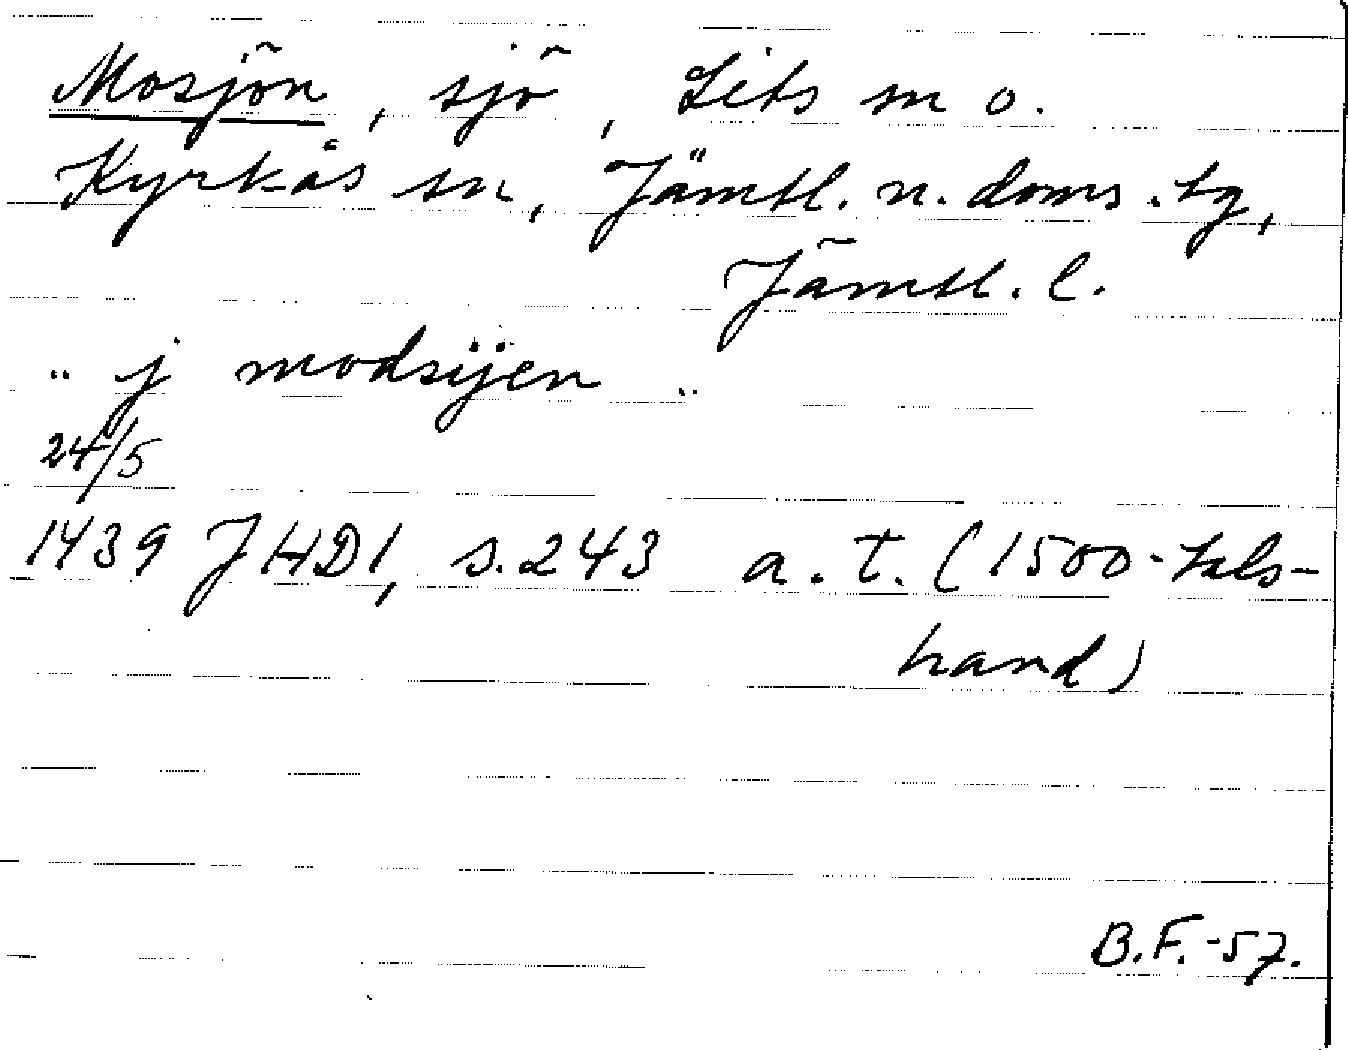 Mosjön, sjö, Lits sn o.
Kyrkås sn, Jämtl. n. doms. tg,
Jämtl. l.
" j modsijen "
24/5
1439 JHD1, s. 243 a. t. (1500-tals-
hand)
B.F.-57.